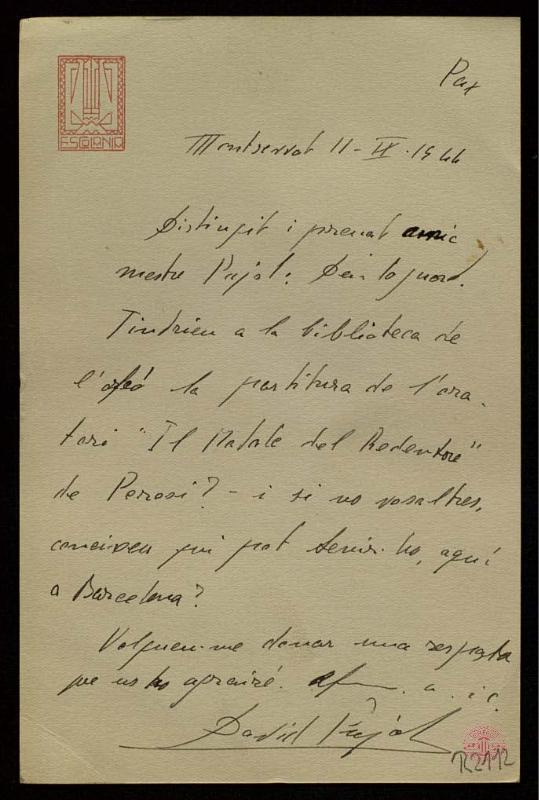 Pax
ESCOLANIA
Montserrat 11-IX-1944
Distingit i preuat amic
mestre Pujol: Déu lo guard.
Tindrieu a la biblioteca de
l'orfeó la partitura de l'ora-
tori "Il Natale del Redentore"
de Perosi? - i si no vosaltres,
coneixeu qui pot tenir-ho, aquí
a Barcelona?
Volgueu-me donar una resposta
que us ho agrairé. a. i c.
David Pujol
R2112